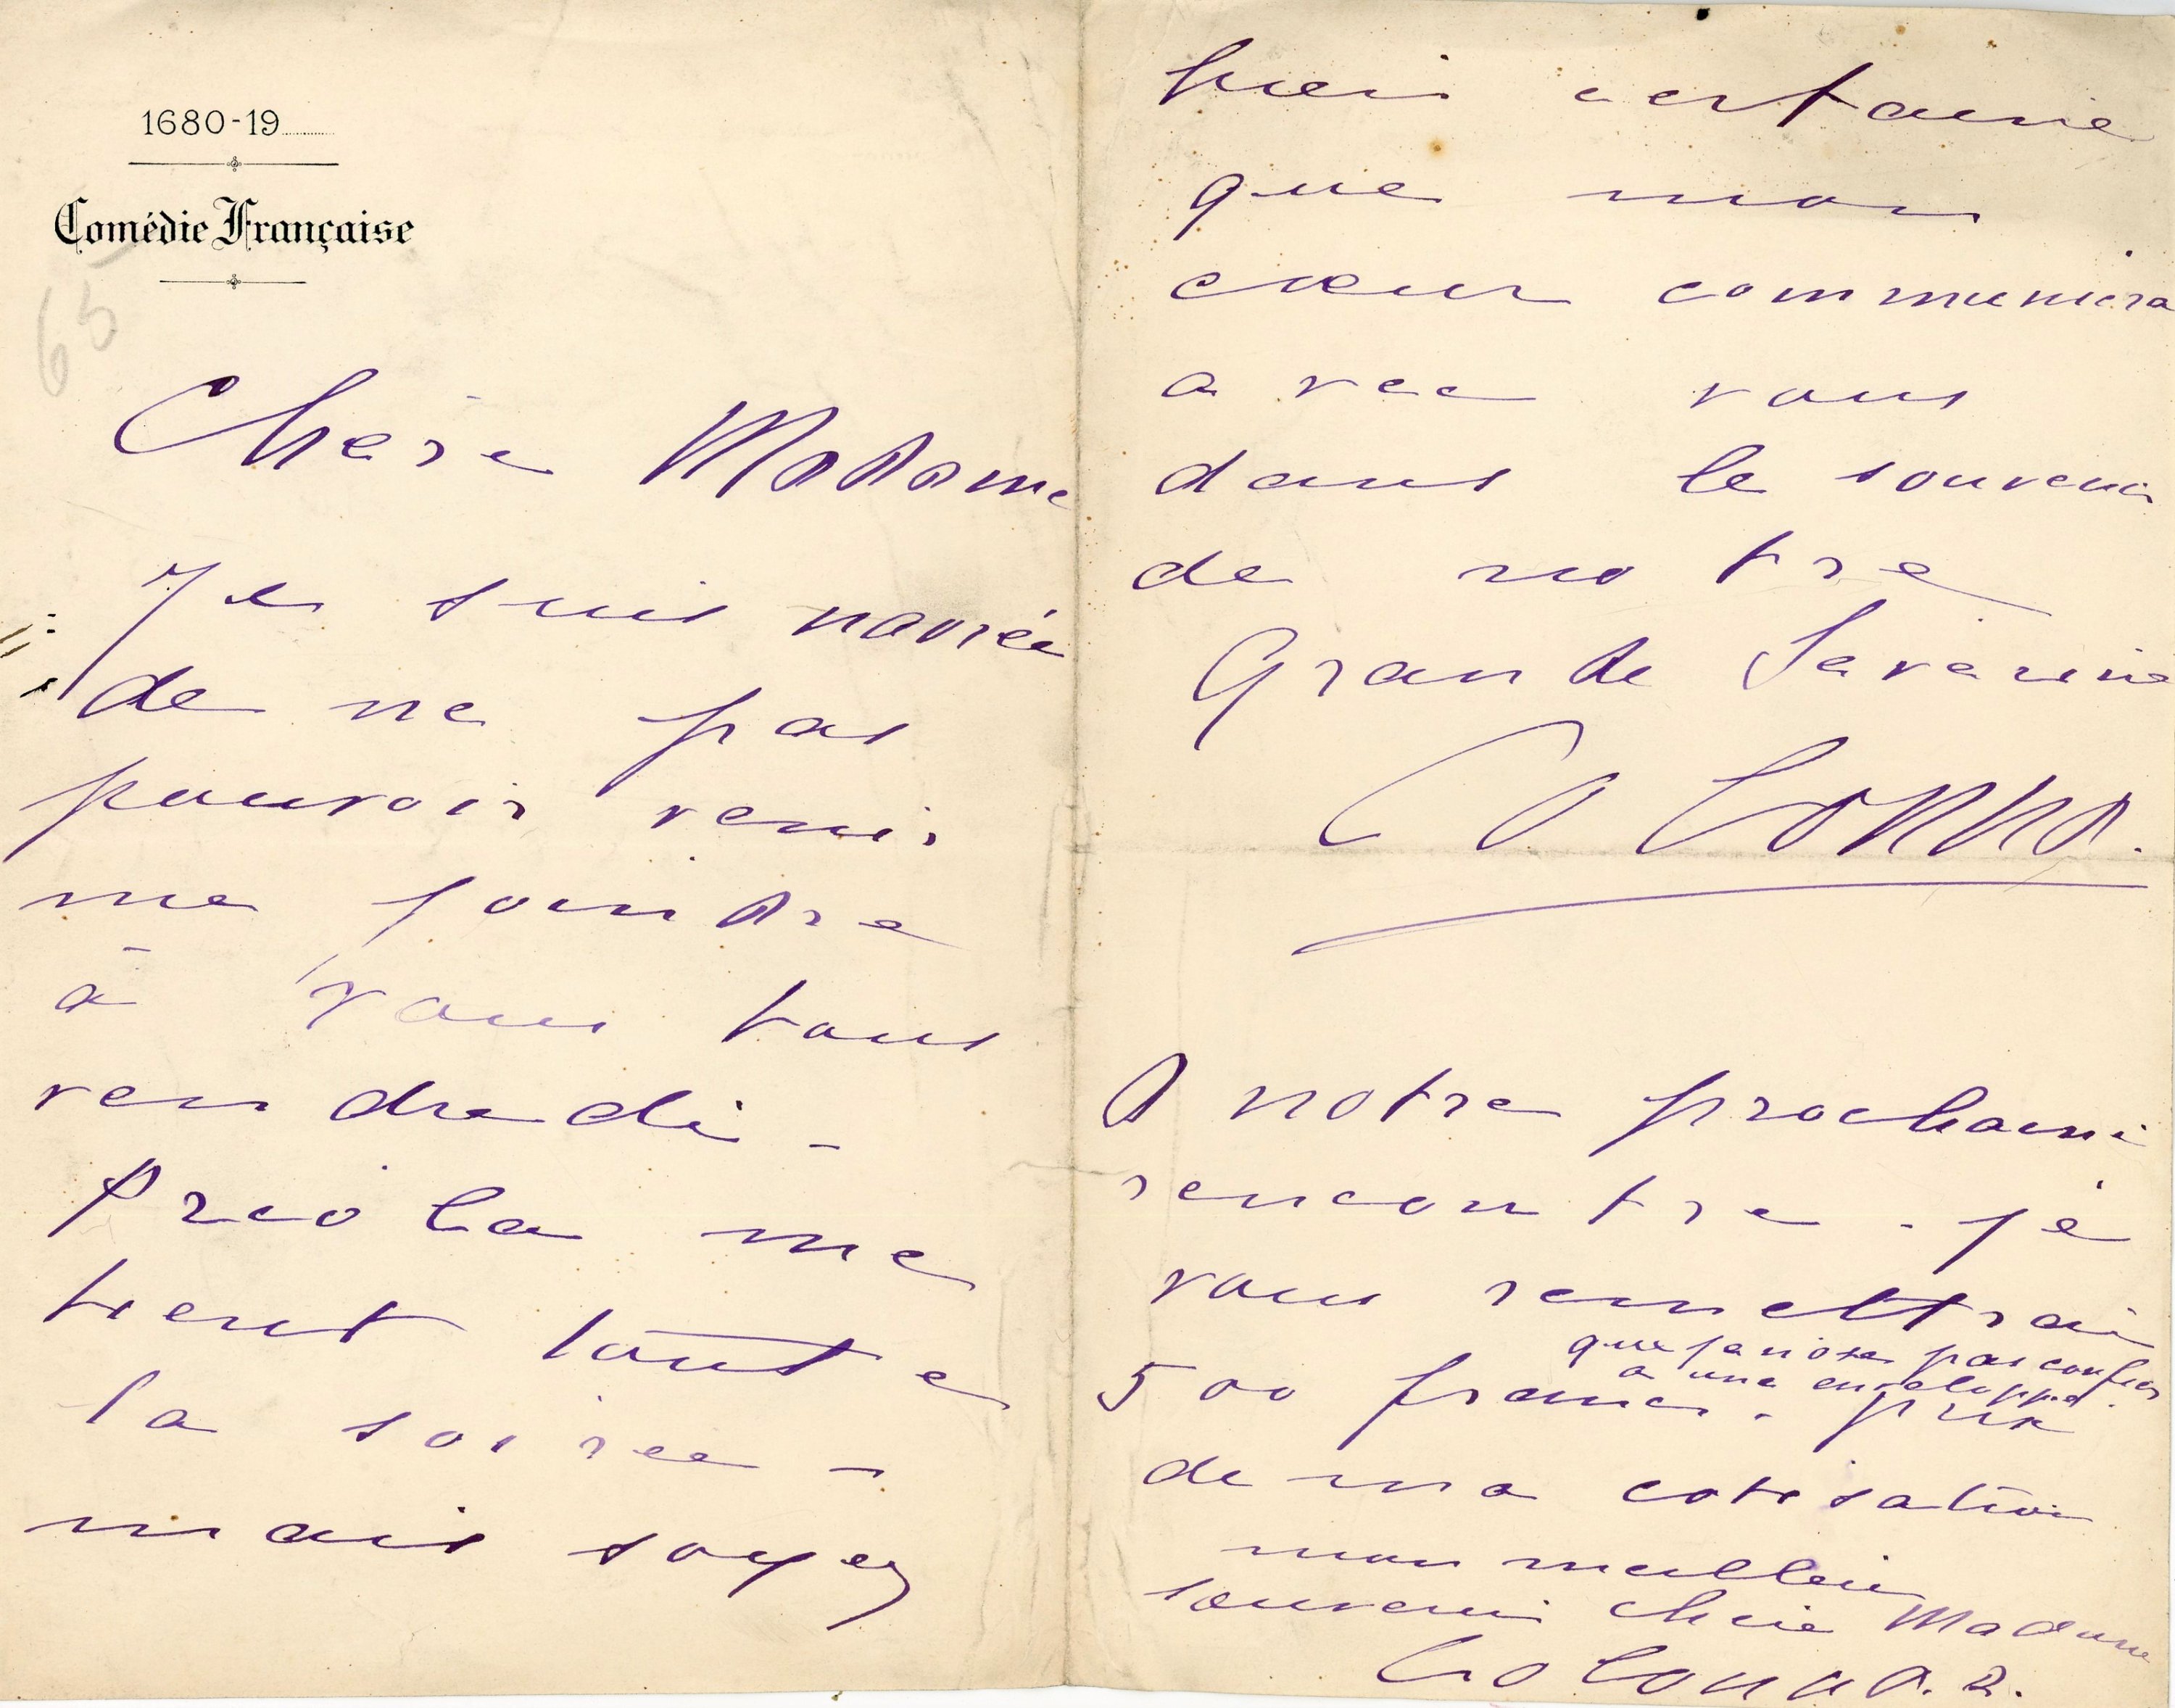 1680-19
Comédie Française
65
Chère Madame
Je suis navrée
de ne pas
pouvoir venir
me joindre
à vous tous
vendredi -
Priola me
tient toute
la soirée -
mais soyez
bien certaine
que mon
cœur communiera
avec vous
dans le souvenir
de notre
Grande Séverine
Colonna.
A notre prochaine
rencontre. je
vous remettrai
que je n'ose pas confier
à une enveloppe.
500 francs. prix
de ma cotisation
mon meilleur
souvenir chère Madame
Colonna. R.